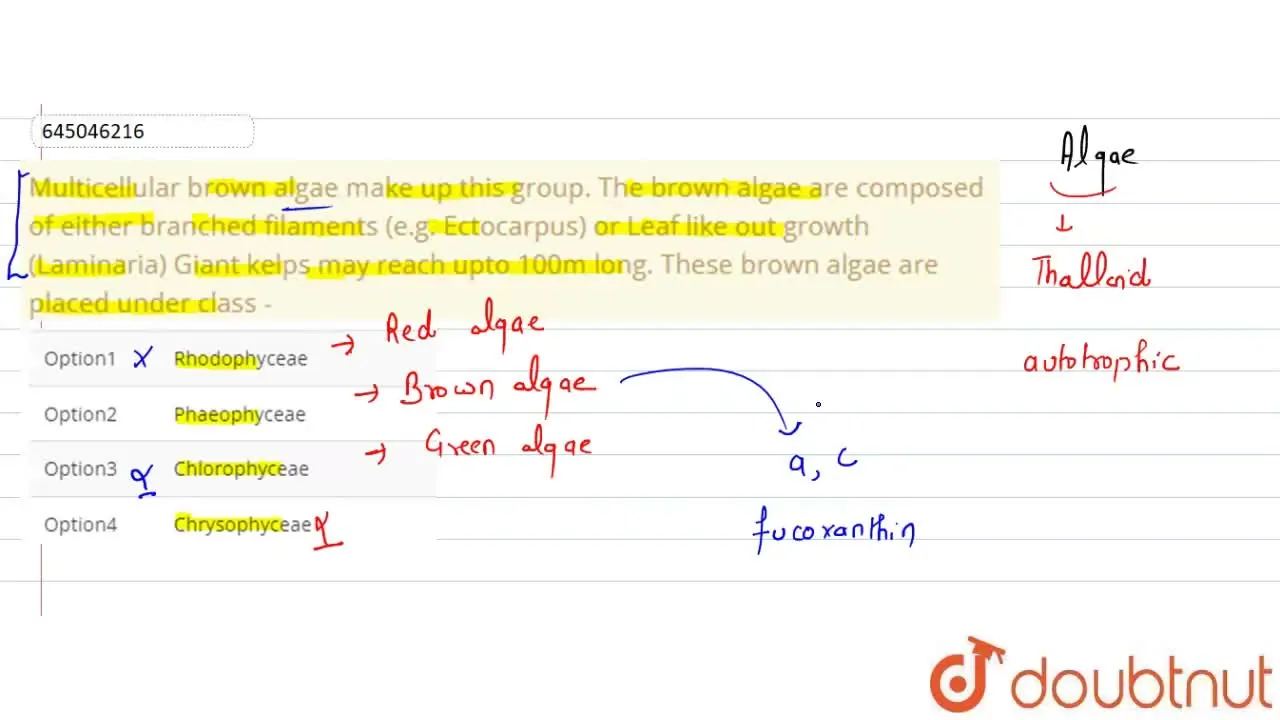 645046216
Multicellular brown algae make up this group. The brown algae are composed
of either branched filaments (e.g. Ectocarpus) or Leaf like out growth
(Laminaria) Giant kelps may reach upto 100m long. These brown algae are
placed under class -
Option1 X Rhodophyceae → Red algae
Option2 Phaeophyceae → Brown algae
Option3 Chlorophyceae → Green algae
Option4 Chrysophyceae
a, c
fucoxanthin
Algae
↓
Thalloid
autotrophic
doubtnut